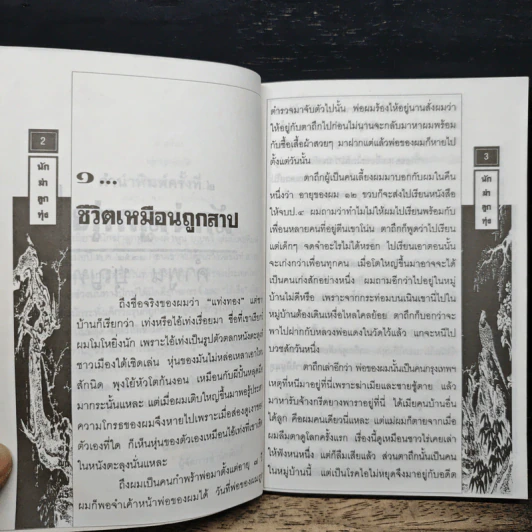 2
นัก
ฆ่า
ลูก
ทุ่ง
๑...
ชีวิตเหมือนถูกสาป
ถึงชื่อจริงของผมว่า "แท่งทอง" แต่ชาว
บ้านก็เรียกว่า เท่งหรือไอ้เท่งเรื่อยมา ชื่อที่เขาเรียก
ผมโมโหยิ่งนัก เพราะไอ้เท่งเป็นรูปตัวตลกหนังตะลุง
ชาวเมืองใต้เชิดเล่น หุ่นของมันไม่หล่อเหลาเอาไหน
สักนิด พุงโย้หัวโตก้นงอน เหมือนกับผีปั้นหลุด
มากระนั้นแหละ แต่เมื่อผมเติบใหญ่ขึ้นมาพอรู้ประสา
ความโกรธของผมจึงหายไปเพราะเมื่อส่องดูเงาของ
ตัวเองทีใด ก็เห็นหุ่นของตัวเองเหมือนไอ้เท่งที่เขาเชิด
ในหนังตะลุงนั่นแหละ
ถึงผมเป็นคนกำพร้าพ่อมาตั้งแต่อายุ ๘
ผมก็พอจำเค้าหน้าพ่อของผมได้ วันที่พ่อของผมถูก
3
นัก
ฆ่า
ลูก
ทุ่ง
ตำรวจมาจับตัวไปนั้น พ่อผมร้องไห้อยู่นานสั่งผมว่า
ให้อยู่กับตาถึกไปก่อนไม่นานจะกลับมาหาผมพร้อม
กับซื้อเสื้อผ้าสวยๆ มาฝากแต่แล้วพ่อของผมก็หายไป
ตั้งแต่วันนั้น
ตาถึกผู้เป็นคนเลี้ยงผมมาบอกกับผมในคืน
หนึ่งว่า อายุของผม ๑๒ ขวบก็จะส่งไปเรียนหนังสือ
ให้จบป.๔ ผมถามว่าทำไมไม่ให้ผมไปเรียนพร้อมกับ
เพื่อนหลายคนที่อยู่ตีนเขาโน่น ตาถึกก็พูดว่าไปเรียน
แต่เด็กๆ จดจำอะไรไม่ได้หรอก ไปเรียนเอาตอนนั้น
จะเก่งกว่าเพื่อนทุกคน เมื่อโตใหญ่ขึ้นมาอาจจะได้
เป็นคนเก่งสักอย่างหนึ่ง ผมถามอีกว่าไปอยู่ในหมู่
บ้านไม่ดีหรือ เพราะจากกระท่อมบนเนินเขานี้ไปใน
หมู่บ้านต้องเดินเหงื่อไหลไคลย้อย ตาถึกก็บอกว่าจะ
พาไปฝากกับหลวงพ่อแดงในวัดไว้แล้ว แกจะหนีไป
บวชสักวันหนึ่ง
ตาถึกเล่าอีกว่า พ่อของผมนั้นเป็นคนกรุงเทพฯ
เหตุที่หนีมาอยู่ที่นี่เพราะฆ่าเมียและชายชู้ตาย แล้ว
มาหารับจ้างกรีดยางพาราอยู่ที่นี่ ได้เมียคนบ้านอื่น
ได้ลูก คือผมคนเดียวนี่แหละ แต่แม่ผมก็ตายจากเมื่อ
ผมลืมตาดูโลกครั้งแรก เรื่องนี้ดูเหมือนชาวไร่เคยเล่า
ให้ฟังหนหนึ่ง แต่ก็ลืมเสียแล้ว ส่วนตาถึกนั้นเป็นคน
ในหมู่บ้านนี้ แต่เป็นโรคไอไม่หยุดจึงมาอยู่กับอดีต